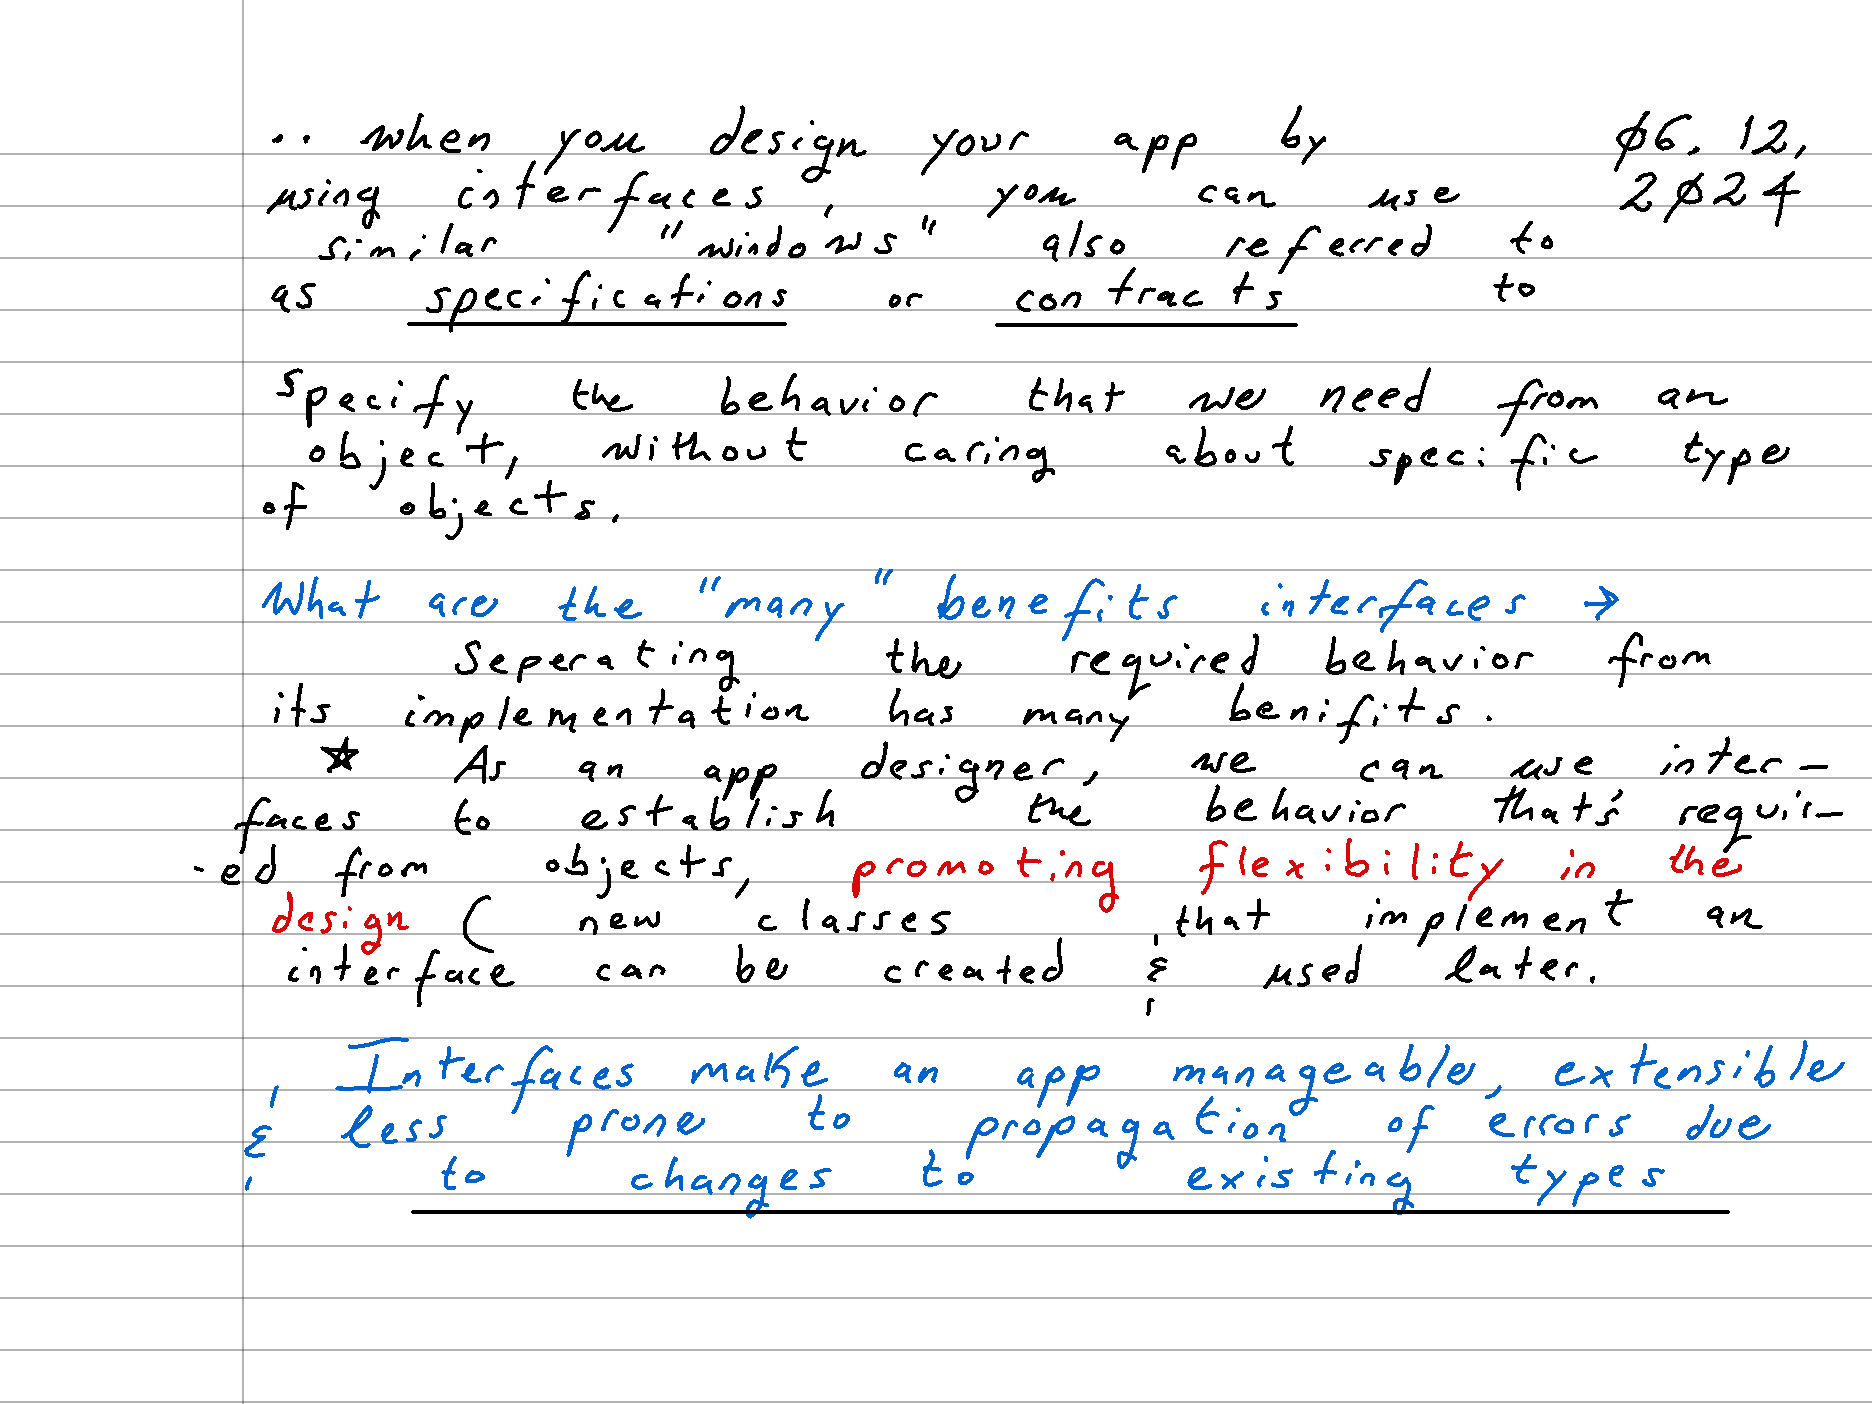 .. when you design your app by ø6. 12,
using interfaces, you can use 2ø24
similar "windows" also referred to
as specifications or contracts to
specify the behavior that we need from an
object, without caring about specific type
of objects.
What are the "many" benefits interfaces →
Seperating the required behavior from
its implementation has many benifits.
☆ As an app designer, we can use inter-
faces to establish the behavior that's requir-
-ed from objects, promoting flexibility in the
design ( new classes that implement an
interface can be created & used later.
Interfaces make an app manageable, extensible
& less prone to propagation of errors due
to changes to existing types